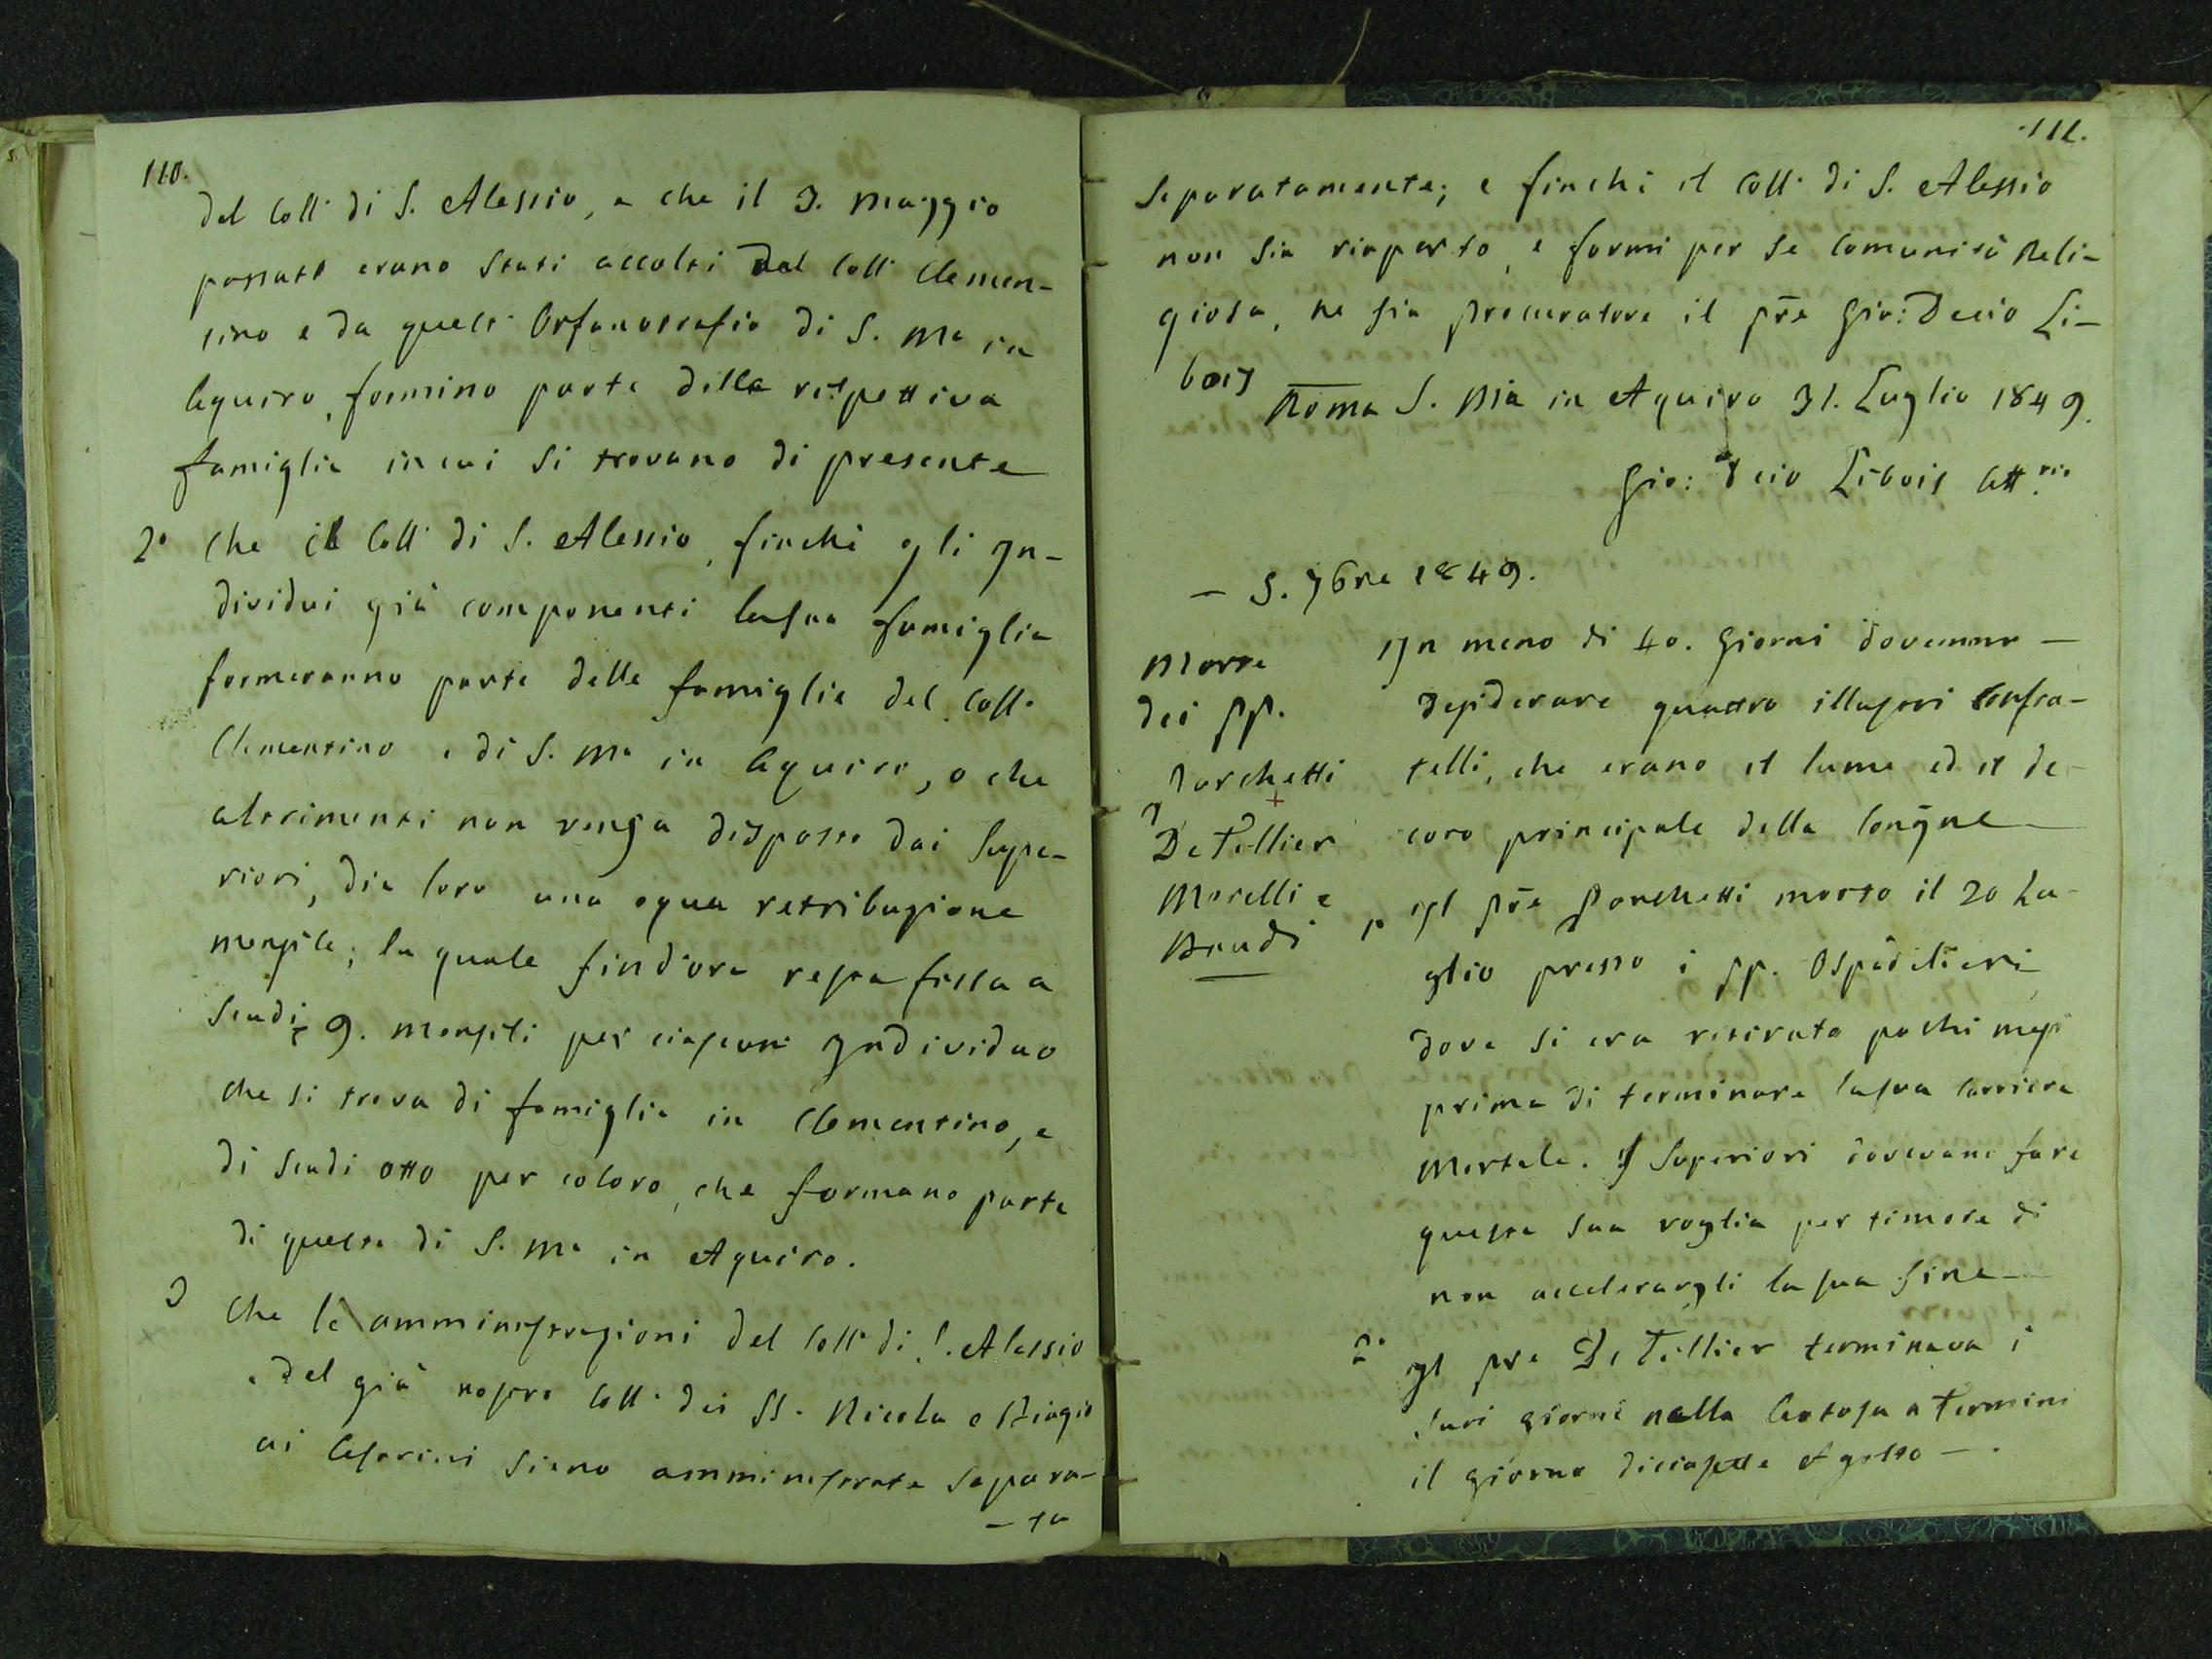 110.
del Coll. di S. Alessio, e che il 3. Maggio
passato erano stati accolti dal Coll. Clemen-
tino e da quest' Orfanotrofio di S. Ma in
Aquiro, formino parte della rispettiva
famiglia in cui si trovano di presente
2° Che il Coll. di S. Alessio, finchè gli In-
dividui già componenti la sua famiglia
formeranno parte delle famiglie del Coll.
Clementino e di S. Ma in Aquiro, o che
altrimenti non venga disposto dai Supe-
riori, dia loro una equa retribuzione
mensile; la quale sin d'ora resta fissa a
Scudi 9. mensili per ciascun Individuo
che si trova di famiglia in Clementino, e
di scudi otto per coloro, che formano parte
di questa di S. Ma in Aquiro.
3 Che le amministrazioni del Coll. di S. Alessio
e del già nostro Coll. dei SS. Nicola e Biagio
ai Cesarini siano amministrate separa-
- ta
111.
Separatamente; e finchi il Coll. di S. Alessio
non sia riaperto, e formi per se Comunità Reli-
giosa, ne sia procuratore il pre Gio: Decio Li-
bois
Roma S. Mia in Aquiro 31. Luglio 1849.
Gio: Decio Libois Att.rio
- 5. 7bre 1849.
Morte
dei pp.
Porchetti
De Tillier
Morelli e
Brudi
In meno di 40. giorni dovemmo -
desiderare quattro illustri Confra-
telli, che erano il lume ed il de-
coro principale della Congne
1° Il pre Porchetti morto il 20 Lu-
glio presso i pp. Ospidalieri
dove si era ritirato pochi mesi
prima di terminare la sua Carriera
Mortale. I Superiori dovevano fare
questa sua voglia per timore di
non accelerargli la sua fine
2° Il pre De Tillier terminava i
suoi giorni nella Certosa a Termini
il giorno diciasette Agosto -.